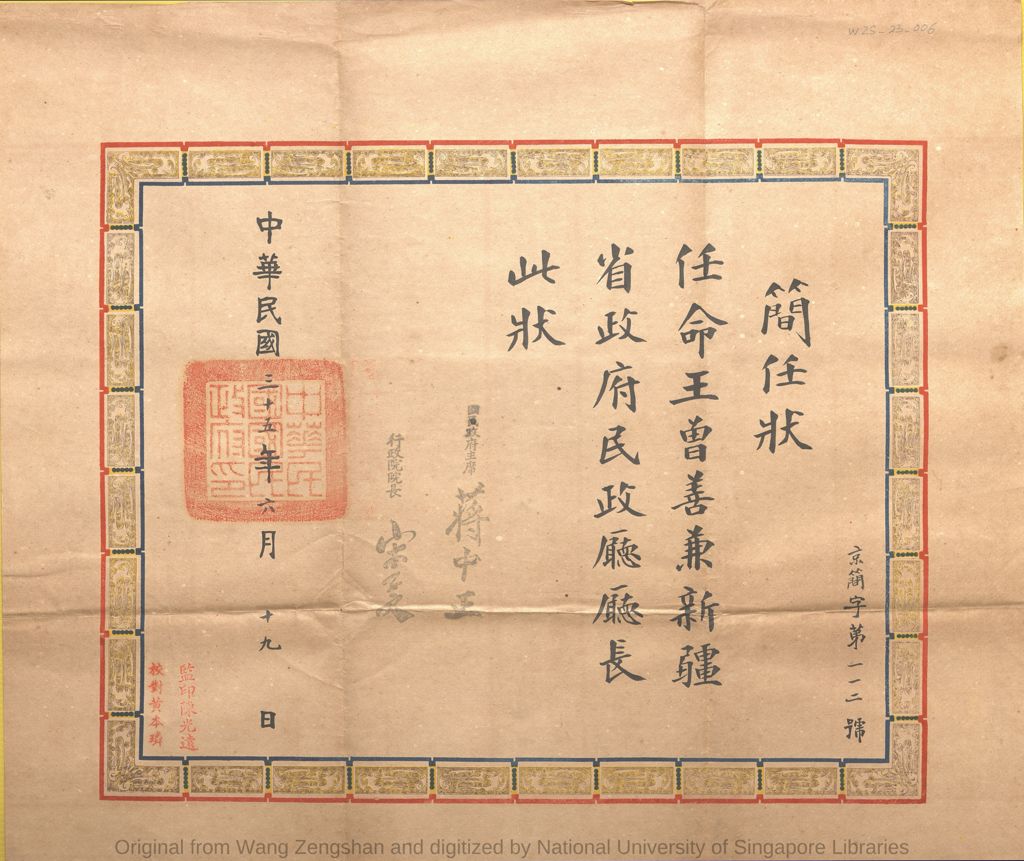 WZS_23_006
京簡字第一一二號
簡任狀
任命王曾善兼新疆
省政府民政廳廳長
此狀
國民政府主席 蔣中正
行政院院長 宋子文
中華民國三十五年六月十九日
中華民國國民政府印
監印陳光遠
校對黃本璘
Original from Wang Zengshan and digitized by National University of Singapore Libraries